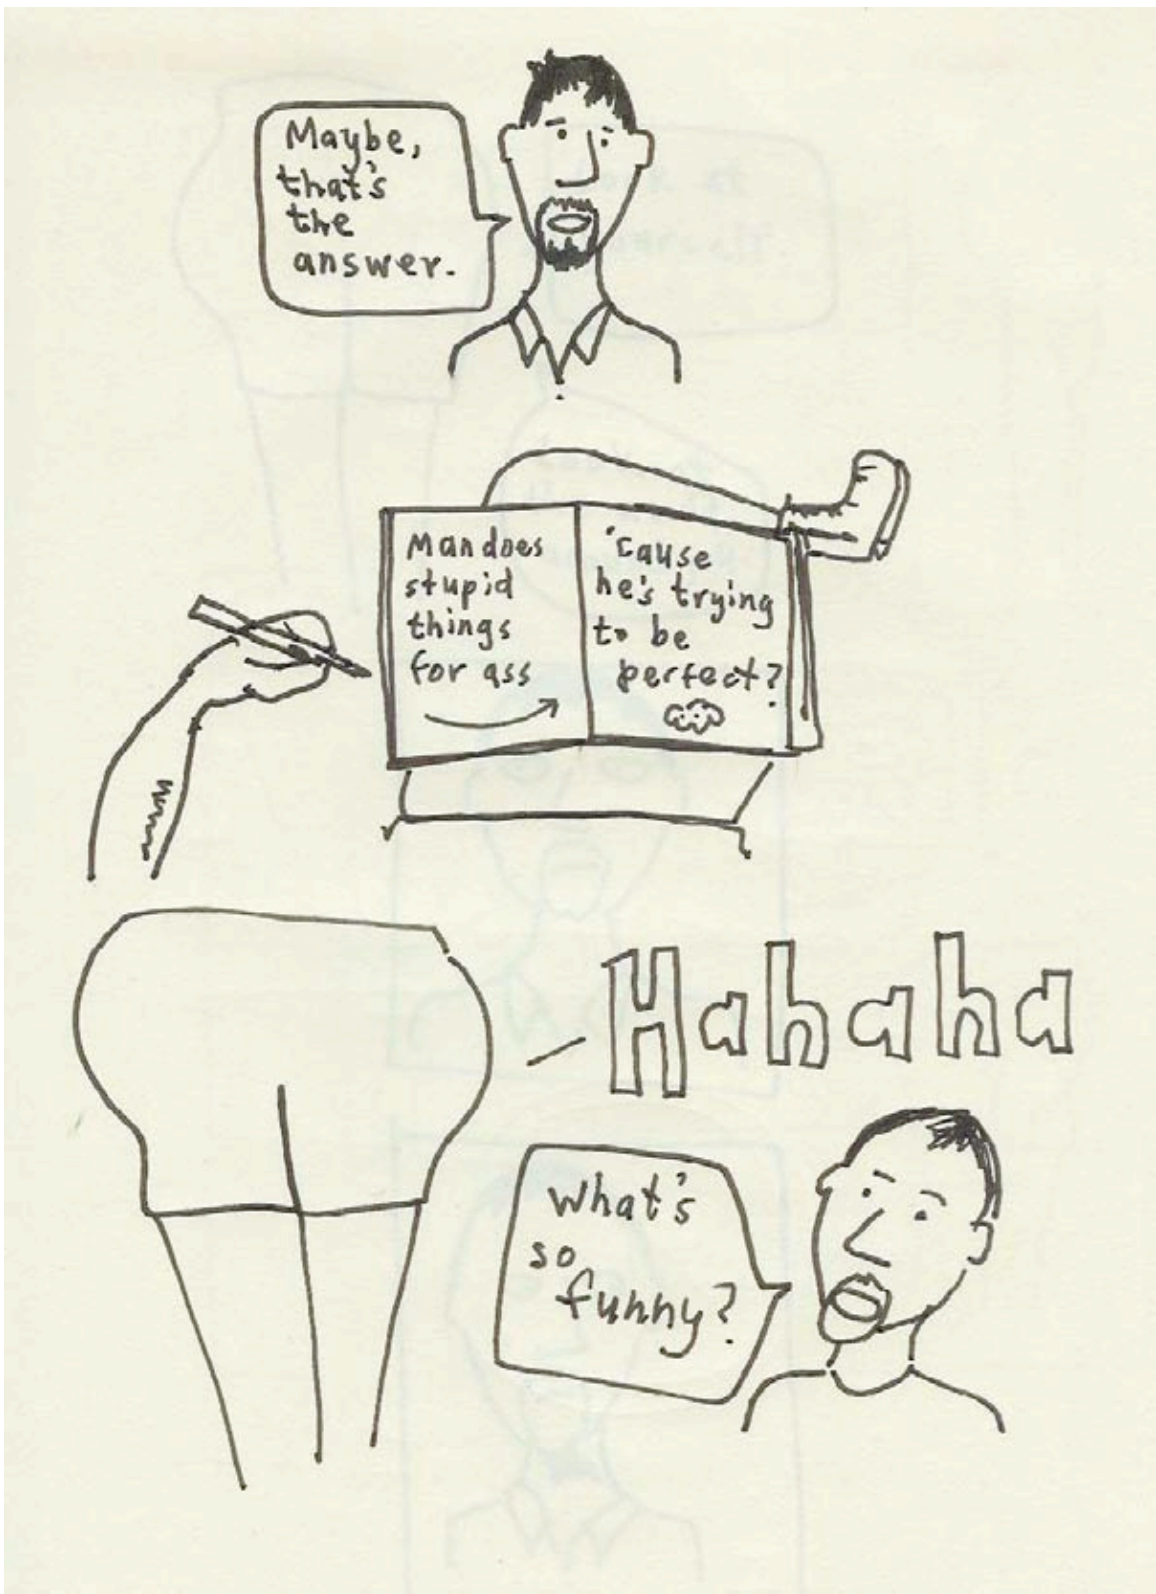 Maybe,
that's
the
answer.
Man does
stupid
things
for ass
'cause
he's trying
to be
perfect?
Hahaha
What's
so
funny?